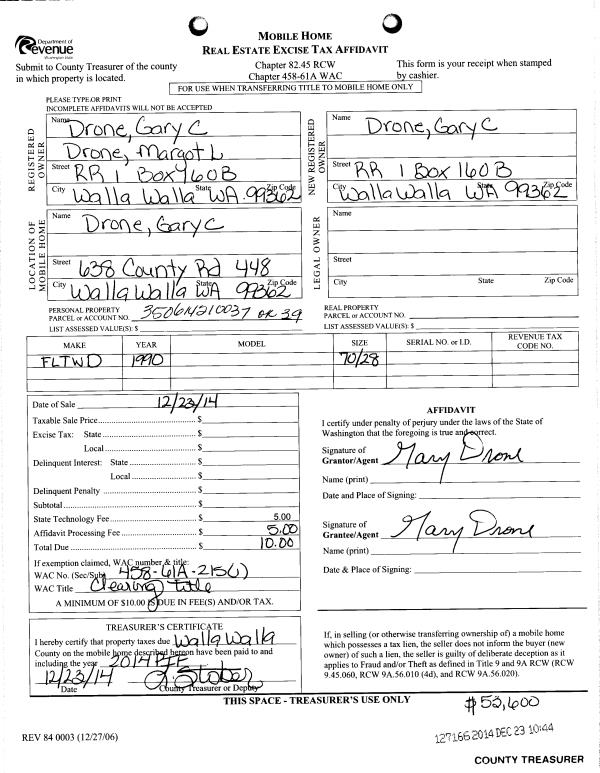 Department of
Revenue
Washington State
MOBILE HOME
REAL ESTATE EXCISE TAX AFFIDAVIT
Submit to County Treasurer of the county
in which property is located.
Chapter 82.45 RCW
Chapter 458-61A WAC
This form is your receipt when stamped
by cashier.
FOR USE WHEN TRANSFERRING TITLE TO MOBILE HOME ONLY
PLEASE TYPE OR PRINT
INCOMPLETE AFFIDAVITS WILL NOT BE ACCEPTED
REGISTERED OWNER
Name Drone, Gary C
Drone, Margot L
Street RR 1 Box 460B
City Walla Walla State WA Zip Code 99362
NEW REGISTERED OWNER
Name Drone, Gary C
Street RR 1 Box 160B
City Walla Walla State WA Zip Code 99362
LOCATION OF MOBILE HOME
Name Drone, Gary C
Street 638 County Rd 448
City Walla Walla State WA Zip Code 99362
LEGAL OWNER
Name
Street
City State Zip Code
PERSONAL PROPERTY
PARCEL or ACCOUNT NO. OR 39
LIST ASSESSED VALUE(S): $
REAL PROPERTY
PARCEL or ACCOUNT NO.
LIST ASSESSED VALUE(S): $
MAKE YEAR MODEL SIZE SERIAL NO. or I.D. REVENUE TAX CODE NO.
FLTWD 1990 70/28
Date of Sale 12/23/14
Taxable Sale Price $
Excise Tax: State $
Local $
Delinquent Interest: State $
Local $
Delinquent Penalty $
Subtotal $
State Technology Fee $ 5.00
Affidavit Processing Fee $ 5.00
Total Due $ 10.00
If exemption claimed, WAC number & title:
WAC No. (Sec/Sub) 458-61A-215(1)
WAC Title Clearing title
A MINIMUM OF $10.00 IS DUE IN FEE(S) AND/OR TAX.
AFFIDAVIT
I certify under penalty of perjury under the laws of the State of
Washington that the foregoing is true and correct.
Signature of
Grantor/Agent Mary Drone
Name (print)
Date and Place of Signing:
Signature of
Grantee/Agent Mary Drone
Name (print)
Date & Place of Signing:
TREASURER'S CERTIFICATE
I hereby certify that property taxes due Walla Walla
County on the mobile home described hereon have been paid to and
including the year 2014 PIF
12/23/14 J. Stober
Date County Treasurer or Deputy
If, in selling (or otherwise transferring ownership of) a mobile home
which possesses a tax lien, the seller does not inform the buyer (new
owner) of such a lien, the seller is guilty of deliberate deception as it
applies to Fraud and/or Theft as defined in Title 9 and 9A RCW (RCW
9.45.060, RCW 9A.56.010 (4d), and RCW 9A.56.020).
THIS SPACE - TREASURER'S USE ONLY
$53,600
REV 84 0003 (12/27/06)
127166 2014 DEC 23 10:44
COUNTY TREASURER